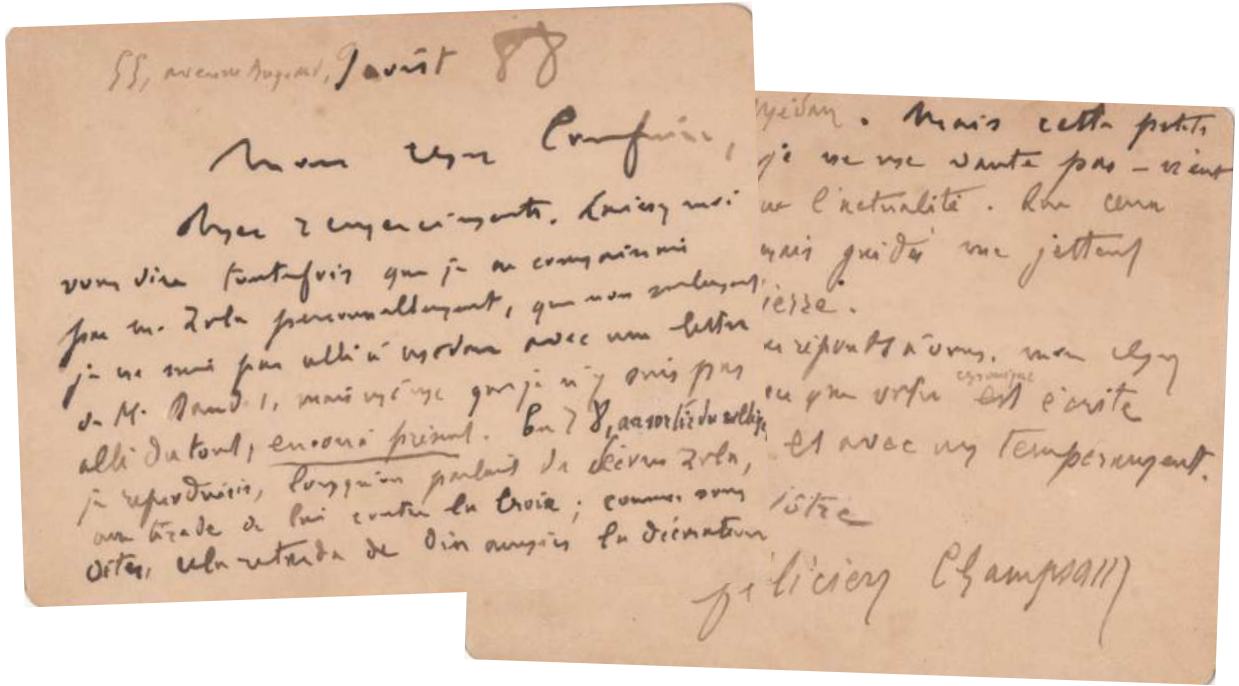 55, avenue Bugeaud, 9 août 88
Mon cher Confrère,
Mes remerciements. Laissez moi
vous dire toutefois que je ne connaissais
pas M. Zola personnellement, que non seulement
je ne suis pas allé à Médan avec une lettre
de M. Daudet, mais même que je n'y suis pas
allé du tout, jusqu'à présent. En 78, au sortir du collège,
je reproduisis, lorsqu'on parlait de décorer Zola,
une tirade de lui contre la croix ; comme vous
dites, cela retarda de dix années la décoration
Médan. Mais cette petite
je ne me vante pas – vient
l'actualité. Que ceux
mais guidé me jettent
pierre.
réponds à vous, mon cher
que votre chronique est écrite
et avec un tempérament.
vôtre
Félicien Champsaur